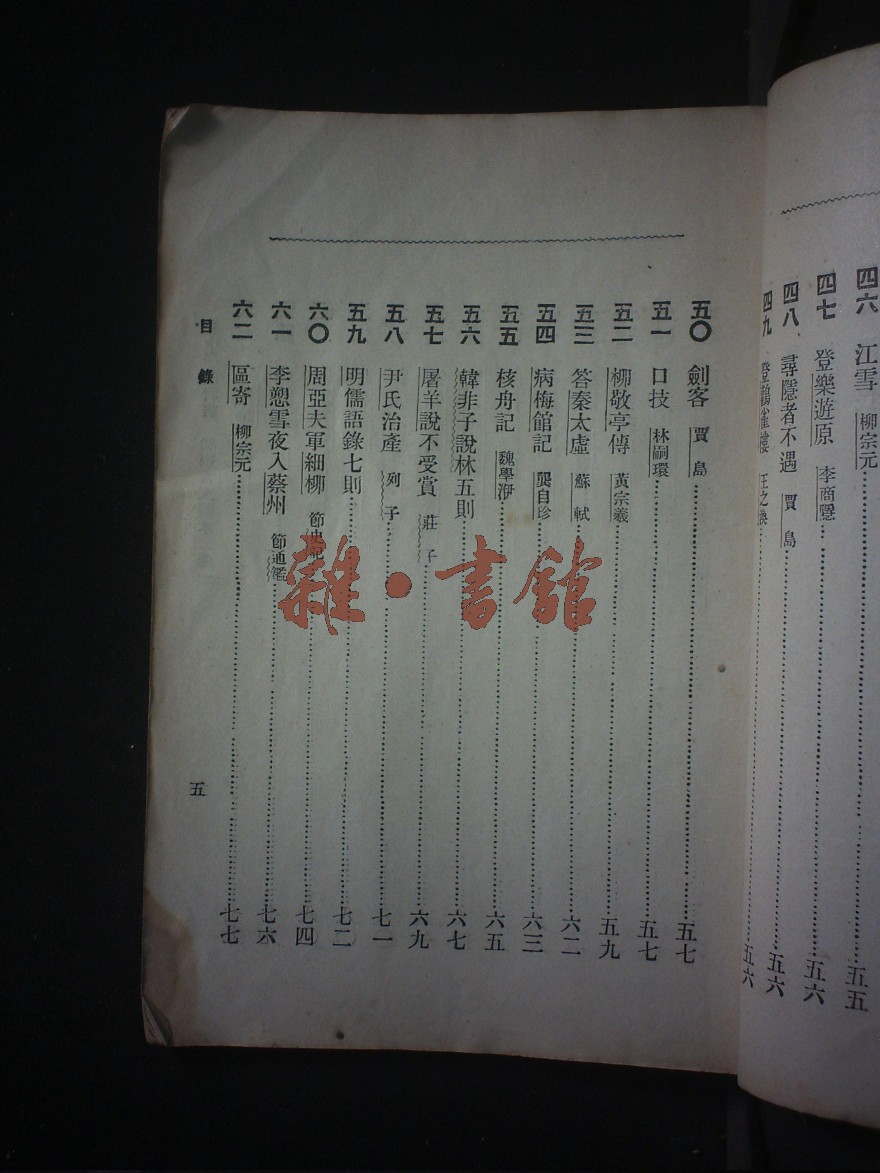 四六 江雪 柳宗元 五五
四七 登樂遊原 李商隱 五六
四八 尋隱者不遇 賈島 五六
四九 登鸛雀樓 王之渙 五六
五〇 劍客 賈島 五七
五一 口技 林嗣環 五七
五二 柳敬亭傳 黃宗羲 五九
五三 答秦太虛 蘇軾 六二
五四 病梅館記 龔自珍 六三
五五 核舟記 魏學洢 六五
五六 韓非子說林五則 六七
五七 屠羊說不受賞 莊子 六九
五八 尹氏治產 列子 七一
五九 明儒語錄七則 七二
六〇 周亞夫軍細柳 節史記 七四
六一 李愬雪夜入蔡州 節通鑑 七六
六二 區寄 柳宗元 七七
目錄 五
雜·書館